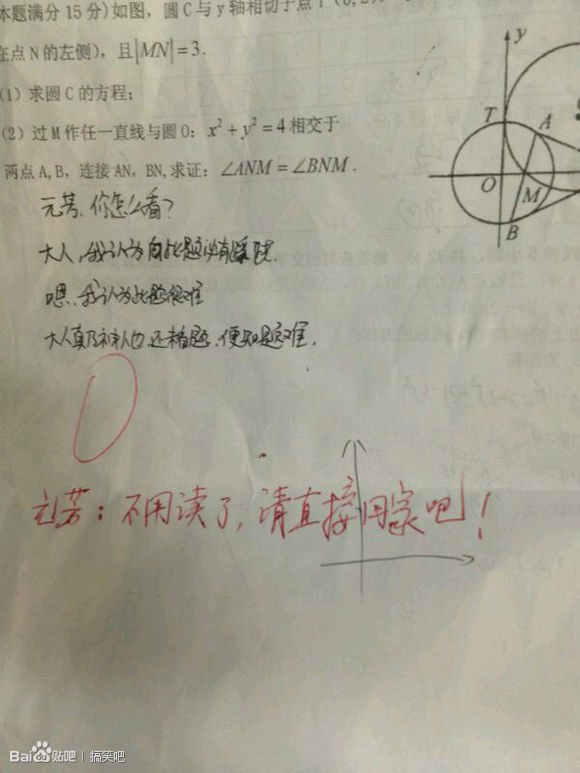 本题满分15分)如图，圆C与y轴相切于点T(0,2)
在点N的左侧)，且|MN|=3.
(1) 求圆C的方程；
(2) 过M作任一直线与圆O: x²+y²=4相交于
两点A,B，连接AN，BN,求证：∠ANM=∠BNM.
y
T
A
O
M
B
元芳，你怎么看？
大人，我认为此题必有蹊跷.
嗯，我认为此题很难
大人真乃神人也，还未看题，便知是难.
0
元芳：不用读了，请直接回家吧！
Baidu贴吧 | 搞笑吧